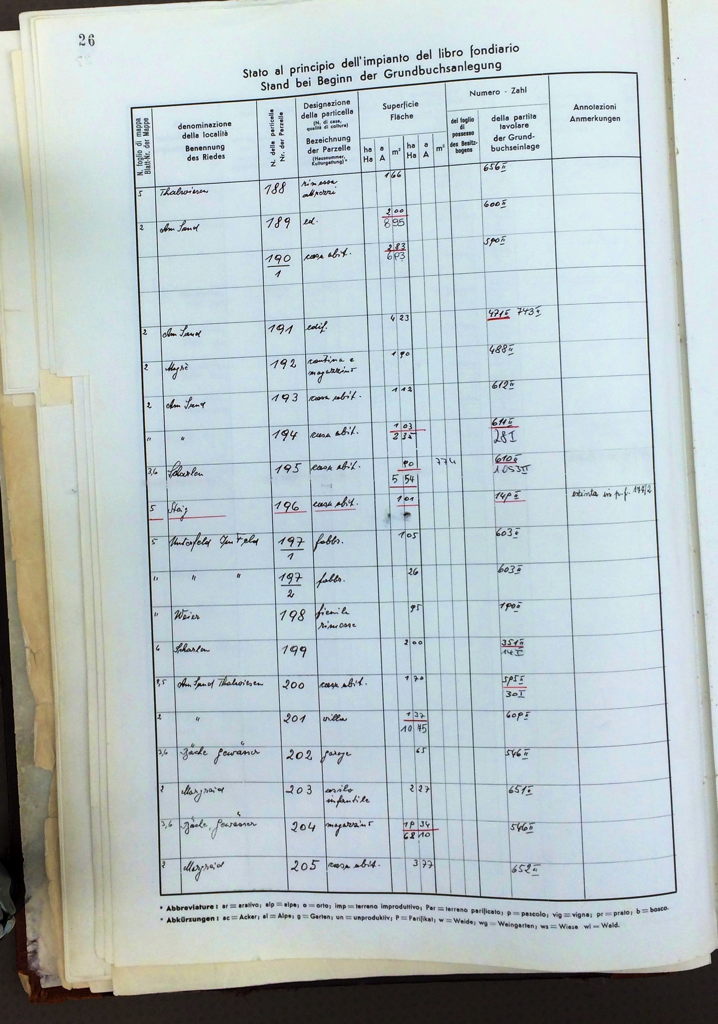 26
Stato al principio dell'impianto del libro fondiario
Stand bei Beginn der Grundbuchsanlegung
N. foglio di mappa
Blatt-Nr. der Mappe
denominazione
della località
Benennung
des Riedes
N. della particella
Nr. der Parzelle
Designazione
della particella
(N. di casa,
qualità di coltura)
Bezeichnung
der Parzelle
(Hausnummer,
Kulturgattung)*
Superficie
Fläche
ha a m² ha a m²
Ha A Ha A
Numero - Zahl
del foglio
di
possesso
des Besitz-
bogens
della partita
tavolare
der Grund-
buchseinlage
Annotazioni
Anmerkungen
5 Thalwiesen 188 rimessa 1 66 656 II
attrezzi
2 Am Sand 189 ed. 2 00 600 II
8 95
190 casa abit. 2 83 590 II
1 6 93
2 Am Sand 191 edif. 4 23 471 II 743 II
2 192 cantina e 1 90 488 II
magazzino
2 Am Sand 193 casa abit. 1 12 612 II
" " 194 casa abit. 1 03 611 II
2 34 28 I
3,6 Scharlen 195 casa abit. 90 7 74 610 II
5 54 1053 II
5 Steig 196 casa abit. 1 01 149 II estinta in p.f. 177/2
5 Unterfeld 197 fabbr. 1 05 603 II
1
" " " 197 fabbr. 26 603 II
2
" Weier 198 fienile 95 190 II
rimesse
6 Scharlen 199 2 00 351 II
14 I
2,5 Am Sand Thalwiesen 200 casa abit. 1 70 595 II
30 I
2 " 201 villa 1 37 609 II
10 75
3,6 Bäche Gewässer 202 garage 65 546 II
2 Margreid 203 asilo 2 27 651 II
infantile
3,6 Bäche, Gewässer 204 magazzino 19 34 546 II
68 10
2 Margreid 205 casa abit. 3 77 652 II
* Abbreviature: ar = arativo; alp = alpe; o = orto; imp = terreno improduttivo; Par = terreno parificato; p = pascolo; vig = vigna; pr = prato; b = bosco.
* Abkürzungen: ac = Acker; al = Alpe; g = Garten; un = unproduktiv; P = Parifikat; w = Weide; wg = Weingarten; ws = Wiese wl = Wald.